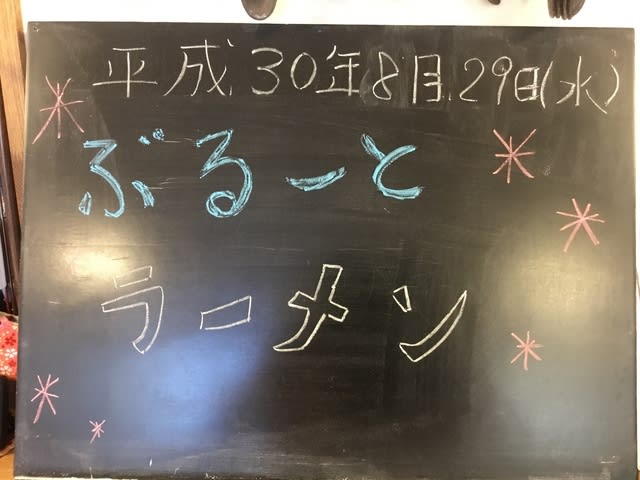 平成30年8月29日(水)
ぶるーと
ラーメン